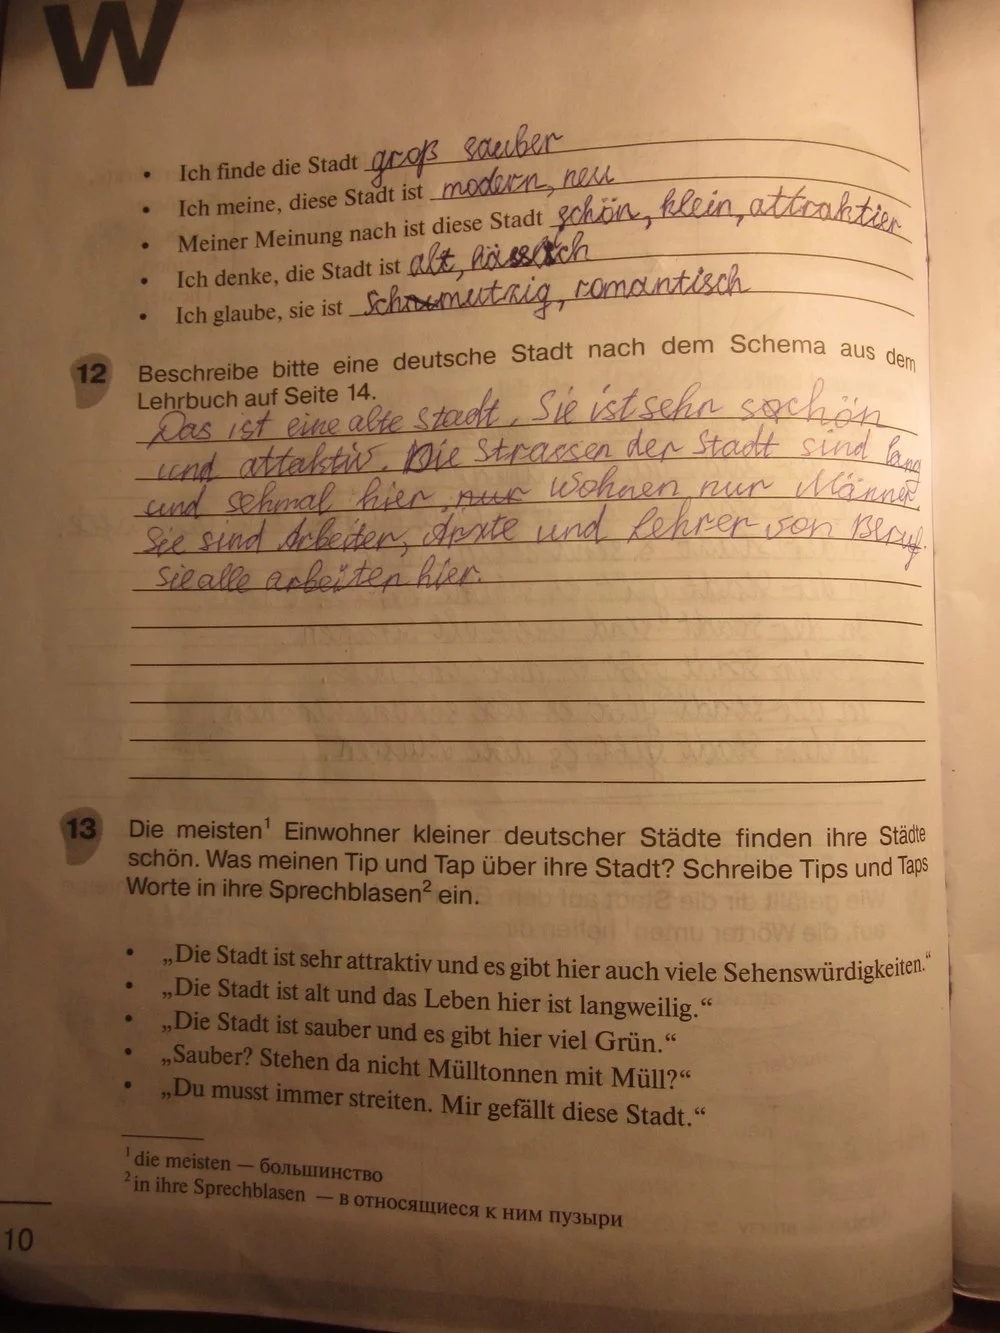 W
• Ich finde die Stadt groß sauber
• Ich meine, diese Stadt ist modern, neu
• Meiner Meinung nach ist diese Stadt schön, klein, attraktier
• Ich denke, die Stadt ist alt, hässlich
• Ich glaube, sie ist schmutzig, romantisch
12 Beschreibe bitte eine deutsche Stadt nach dem Schema aus dem
Lehrbuch auf Seite 14.
Das ist eine alte Stadt. Sie ist sehr schön
und attaktiv. Die Strassen der Stadt sind lang
und sehmal hier nur wohnen nur Männer.
Sie sind Arbeiter, Ärxte und Lehrer von Beruf.
Sie alle arbeiten hier.
13 Die meisten¹ Einwohner kleiner deutscher Städte finden ihre Städte
schön. Was meinen Tip und Tap über ihre Stadt? Schreibe Tips und Taps
Worte in ihre Sprechblasen² ein.
• „Die Stadt ist sehr attraktiv und es gibt hier auch viele Sehenswürdigkeiten.“
• „Die Stadt ist alt und das Leben hier ist langweilig.“
• „Die Stadt ist sauber und es gibt hier viel Grün.“
• „Sauber? Stehen da nicht Mülltonnen mit Müll?“
• „Du musst immer streiten. Mir gefällt diese Stadt.“
¹ die meisten — большинство
² in ihre Sprechblasen — в относящиеся к ним пузыри
10